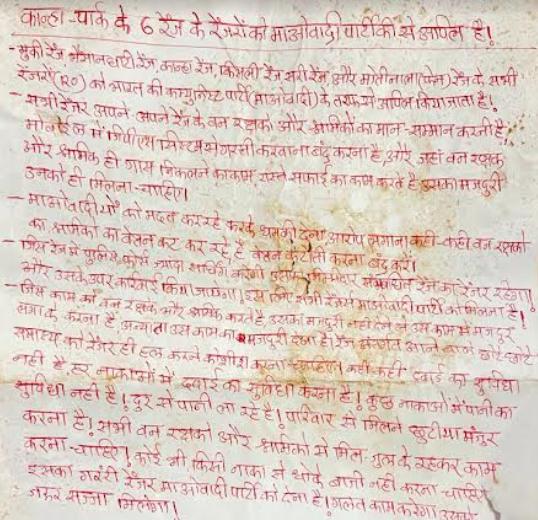 कान्हा-पार्क के 6 रेंज के रेंजरो को माओवादी पार्टी की से अपिल है!
- मुकी रेंज, भैसानघाट रेंज, कान्हा रेंज, किसली रेंज, सरी रेंज, और मोतीनाला रेंज के सभी
रेंजरो को भारत की कम्युनिस्ट पार्टी (माओवादी) के तरफ से अपिल किया जाता है!
- सभी रेंजर अपने-अपने रेंज के वन रक्षको और श्रमिकों का मान-सम्मान करनी है,
मोबाईल में जिपीएस सिस्टम से गस्ती करवाना बंद करना है, और जहां वन रक्षक
और श्रमिक ही गास निकलने का काम, रास्ते सफाई का काम करते है उसका मजदुरी
उनको ही मिलना-चाहिए।
- माओवादीयों को मदत कर रहे करके धमकी देना, आरोप लगाना कही-कही वन रक्षको
का श्रमिकों का वेतन कट कर रहे है, वेतन कटौती करना बंद करें।
- जिस रेंज में पुलिस फोर्स ज्यादा सर्चिंग करेगी उसका जिम्मेदार संबंधित रेंज का रेंजर रहेगा!
और उसके उपर कारवाई किया जायेगा! इस लिए सभी रेंजर माओवादी पार्टी को मिलना है!
- जिस काम को वन रक्षक और श्रमिक करते है, उसका मजदुरी नही देने से उस काम में मजदुर
लगा के करना है, अन्यता उस काम का मजदुरी देना है। रेंज अंतर्गत आने वाले छोटे-छोटे
समास्या को रेंजर ही हल करने कोशीश करना चाहिए। कही कही दवाई का सुविधा
नही है हर नाकाओं में दवाई का सुविधा करना है! कुछ नाकाओं में पानी का
सुविधा नही है! दुर से पानी ला रहे है! परिवार से मिलने छुटीया मंजुर
करना है! सभी वन रक्षको और श्रमिको से मिल जुल के रहकर काम
करना-चाहिए! कोई भी किसी नाका से धोके बाजी नही करना चाहिए
इसका गारंटी रेंजर माओवादी पार्टी को देना है! गलत काम करेगा उसको
जरूर सज्जा मिलेगा!